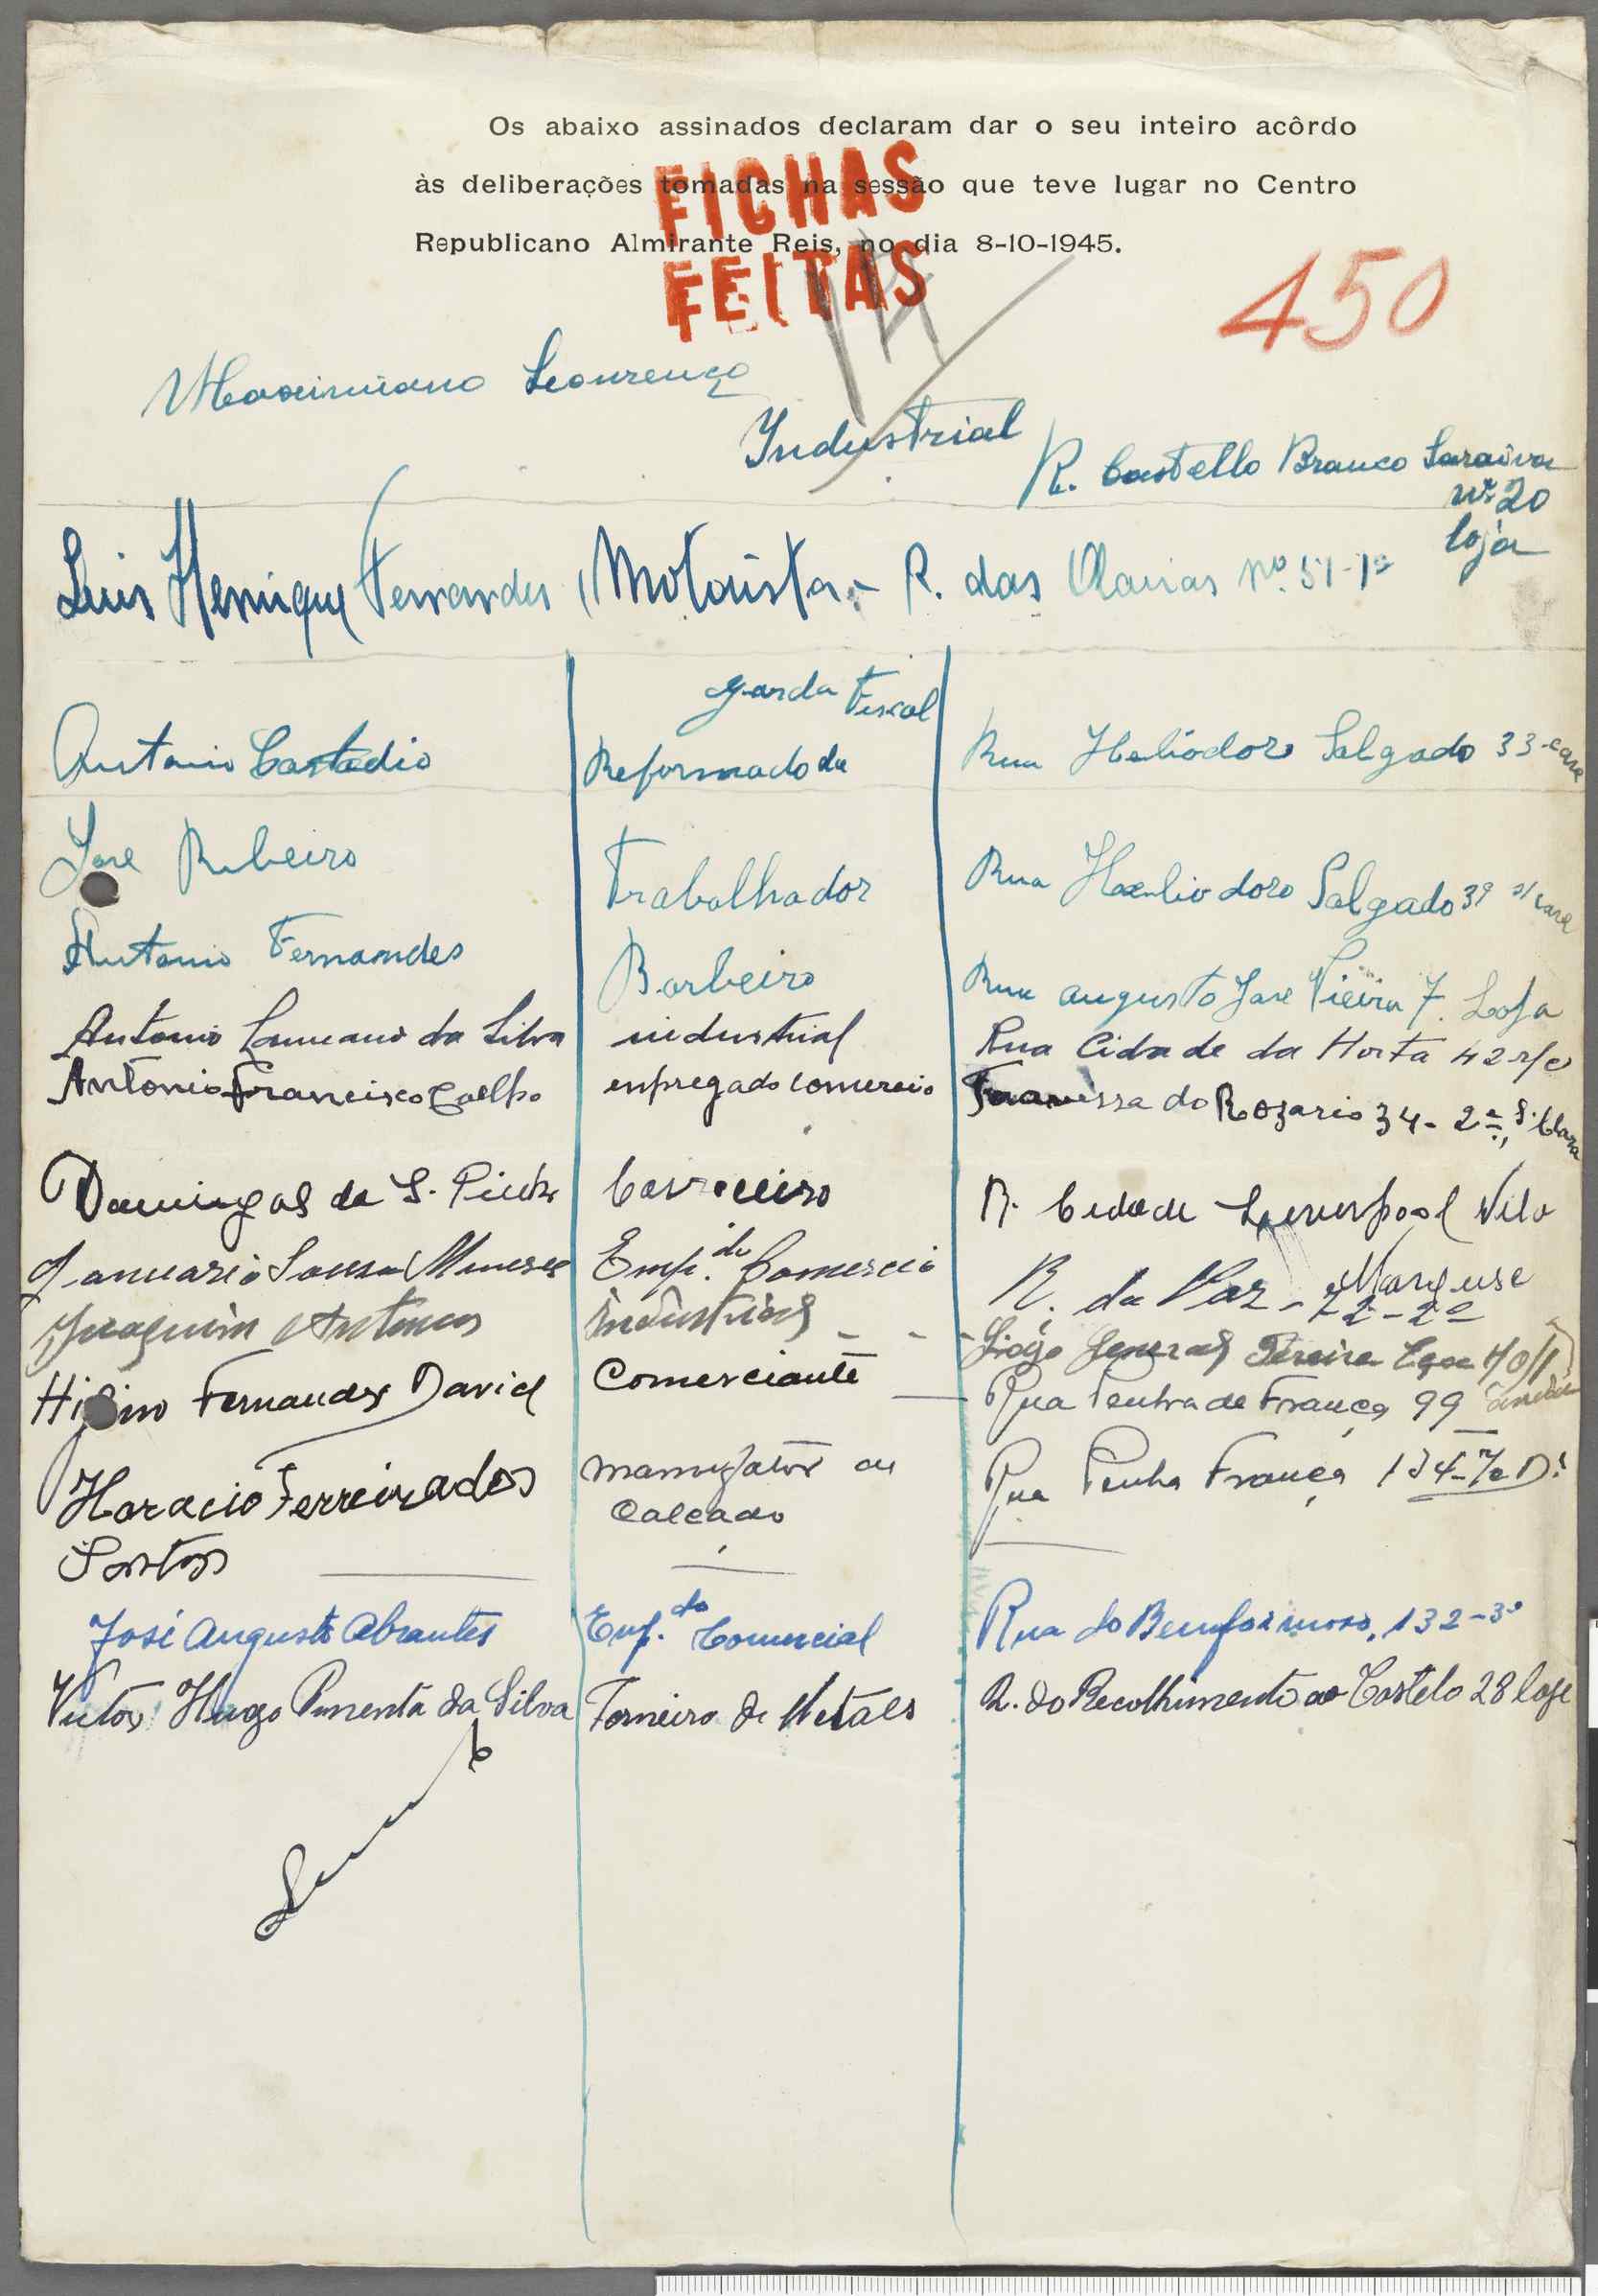 Os abaixo assinados declaram dar o seu inteiro acôrdo
às deliberações tomadas na sessão que teve lugar no Centro
Republicano Almirante Reis, no dia 8-10-1945.
FICHAS
FEITAS
14
450
Maximiano Lourenço
Industrial
R. Castello Branco Saraiva
nº 20
loja
Luis Henrique Fernandes Motorista - R. das Olarias nº 51-1º
Garda Fiscal
Antonio Castadio Reformado da Rua Heliodoro Salgado 33-cave
José Ribeiro Trabalhador Rua Haeliodoro Salgado 39 s/cave
Antonio Fernandes Barbeiro Rua Augusto José Vieira 7. Loja
Antonio da Silva industrial Rua Cidade da Horta 42 r/c
Antonio Francisco Coelho enpregado comercio Travessa do Rozario 34-2º, S. Clara
Domingos de S. R. Cidade Liverpool Vila
Januario Sousa Meneses Emp.do Comercio R. da Paz - 22-2º
Marquese
Joaquim Antunes industrial General Pereira
Higino Fernandes David Comerciante Rua Penha de França 99
Horacio Ferreira dos Rua Penha França 134-
Santos Calçado
José Augusto Abrantes Emp.do Comercial Rua do Bemformoso, 132-3º
Victor Hugo Pimenta da Silva Torneiro de Metaes R. do Recolhimento ao Castelo 28 loje